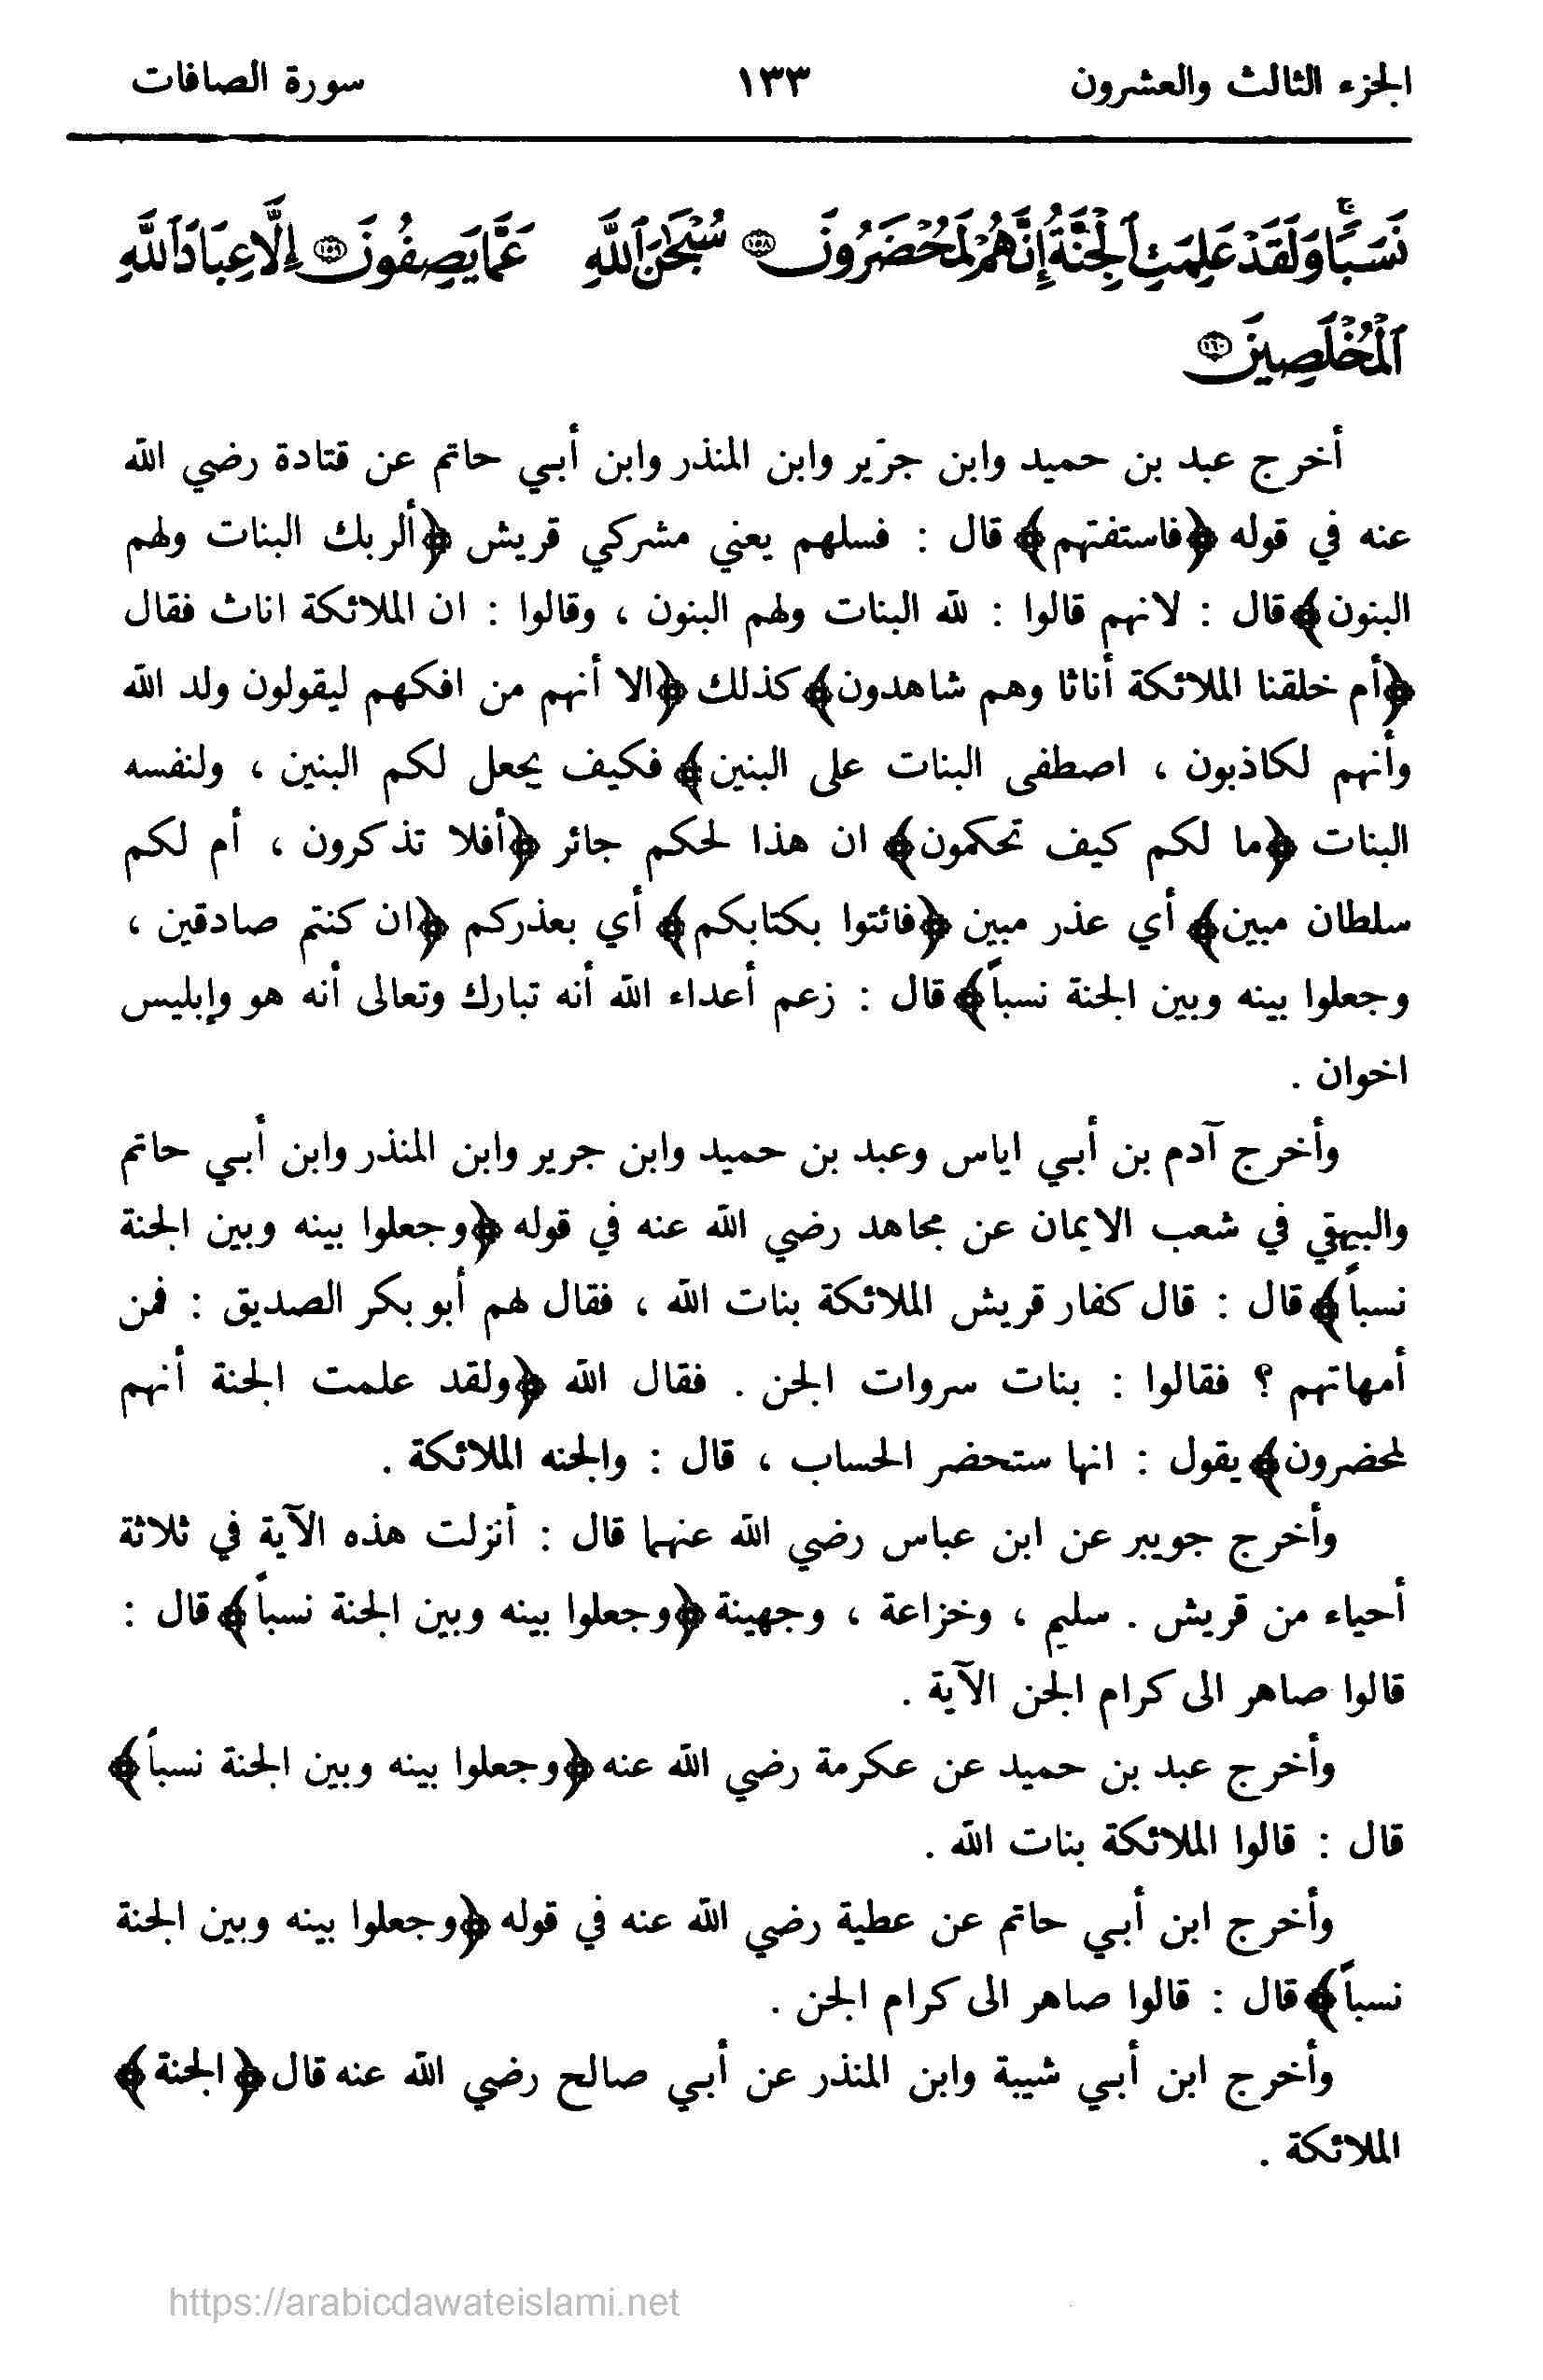 الجزء الثالث والعشرون ١٣٣ سورة الصافات
نَسَبًا ۚ وَلَقَدْ عَلِمَتِ ٱلْجِنَّةُ إِنَّهُمْ لَمُحْضَرُونَ ١٥٨ سُبْحَٰنَ ٱللَّهِ عَمَّا يَصِفُونَ ١٥٩ إِلَّا عِبَادَ ٱللَّهِ
ٱلْمُخْلَصِينَ ١٦٠
أخرج عبد بن حميد وابن جرير وابن المنذر وابن أبي حاتم عن قتادة رضي الله
عنه في قوله ﴿فاستفتهم﴾ قال : فسلهم يعني مشركي قريش ﴿ألربك البنات ولهم
البنون﴾ قال : لانهم قالوا : لله البنات ولهم البنون ، وقالوا : ان الملائكة اناث فقال
﴿أم خلقنا الملائكة أناثا وهم شاهدون﴾ كذلك ﴿الا أنهم من افكهم ليقولون ولد الله
وأنهم لكاذبون ، اصطفى البنات على البنين﴾ فكيف يجعل لكم البنين ، ولنفسه
البنات ﴿ما لكم كيف تحكمون﴾ ان هذا لحكم جائر ﴿أفلا تذكرون ، أم لكم
سلطان مبين﴾ أي عذر مبين ﴿فائتوا بكتابكم﴾ أي بعذركم ﴿ان كنتم صادقين ،
وجعلوا بينه وبين الجنة نسباً﴾ قال : زعم أعداء الله أنه تبارك وتعالى أنه هو وإبليس
اخوان .
وأخرج آدم بن أبي اياس وعبد بن حميد وابن جرير وابن المنذر وابن أبي حاتم
والبيهقي في شعب الايمان عن مجاهد رضي الله عنه في قوله ﴿وجعلوا بينه وبين الجنة
نسباً﴾ قال : قال كفار قريش الملائكة بنات الله ، فقال لهم أبو بكر الصديق : فمن
أمهاتهم ؟ فقالوا : بنات سروات الجن . فقال الله ﴿ولقد علمت الجنة أنهم
لمحضرون﴾ يقول : انها ستحضر الحساب ، قال : والجنه الملائكة .
وأخرج جويبر عن ابن عباس رضي الله عنهما قال : أنزلت هذه الآية في ثلاثة
أحياء من قريش . سليم ، وخزاعة ، وجهينة ﴿وجعلوا بينه وبين الجنة نسباً﴾ قال :
قالوا صاهر الى كرام الجن الآية .
وأخرج عبد بن حميد عن عكرمة رضي الله عنه ﴿وجعلوا بينه وبين الجنة نسباً﴾
قال : قالوا الملائكة بنات الله .
وأخرج ابن أبي حاتم عن عطية رضي الله عنه في قوله ﴿وجعلوا بينه وبين الجنة
نسباً﴾ قال : قالوا صاهر الى كرام الجن .
وأخرج ابن أبي شيبة وابن المنذر عن أبي صالح رضي الله عنه قال ﴿الجنة﴾
الملائكة .
https://arabicdawateislami.net